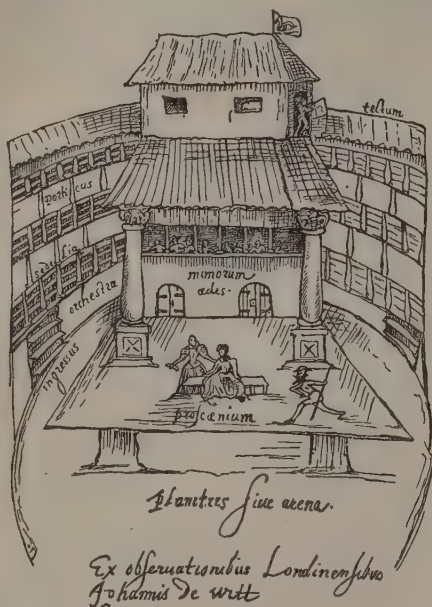 tectum
porticus
sedilia
orchestra
mimorum
ædes.
ingressus
proscænium
planities siue arena.
Ex obseruationibus Londinensibus
Johannis de witt